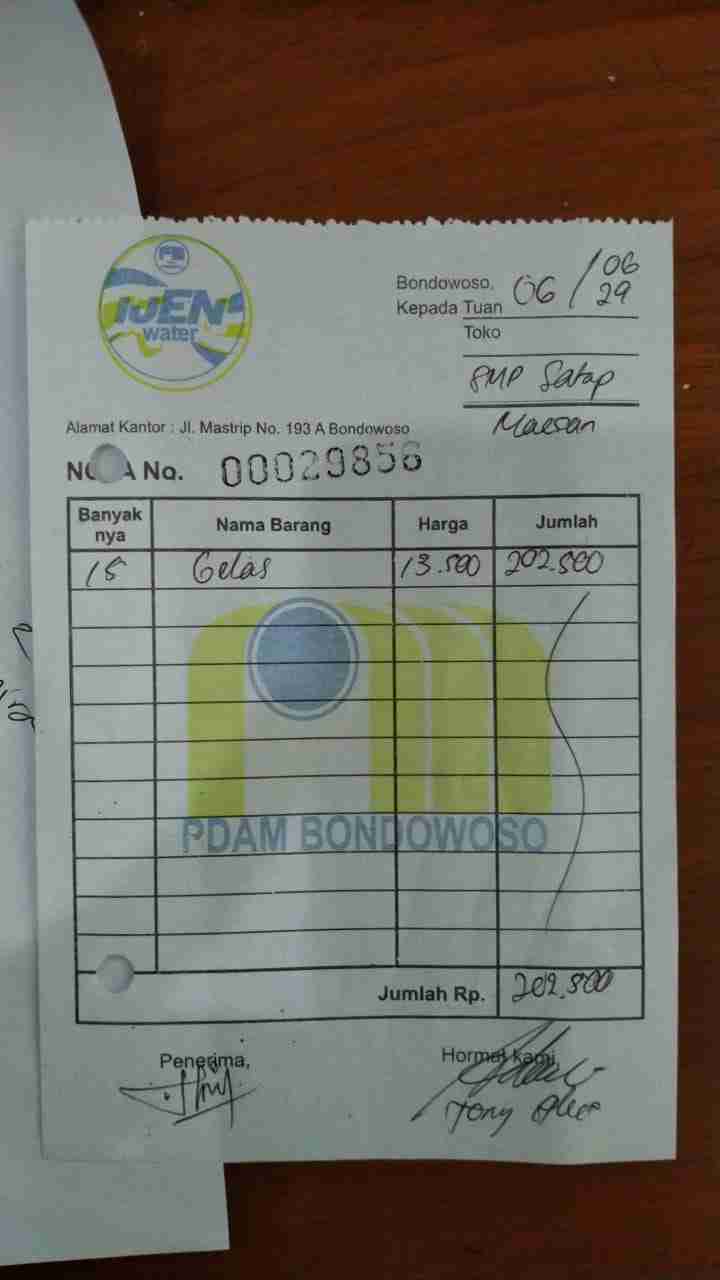 IJEN
water
Bondowoso, 06/06
29
Kepada Tuan
Toko
SMP Satap
Maesan
Alamat Kantor : Jl. Mastrip No. 193 A Bondowoso
NO A No. 00029856
Banyak nya Nama Barang Harga Jumlah
15 Gelas 13.500 202.500
PDAM BONDOWOSO
Jumlah Rp. 202.500
Penerima, Hormat kami,
Tony